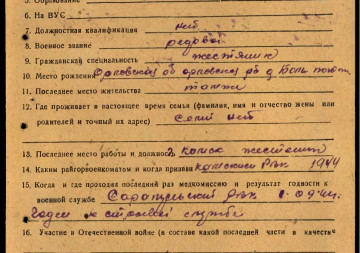 5. Образование
6. На ВУС
7. Должностная квалификация нет
8. Военное звание рядовой
9. Гражданская специальность жестянщик
10. Место рождения Орловская об орловская рб д
11. Последнее место жительства
12. Где проживает в настоящее время семья (фамилия, имя и отчество жены или
родителей и точный их адрес) Семьи нет
13. Последнее место работы и должность жестянщик
14. Каким райгорвоенкоматом и когда призван РВК 1944
15. Когда и где проходил последний раз медкомиссию и результат годности к
военной службе Сарапульский РВК
Годен к строевой службе
16. Участие в Отечественной войне (в составе какой последней части в качестве